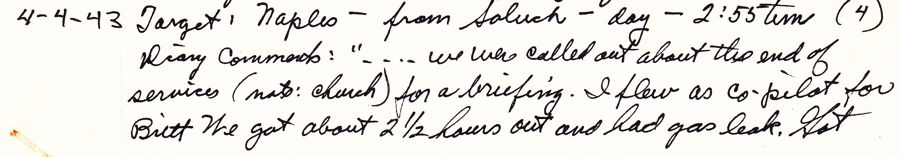 4-4-43 Target: Naples - from Soluch - day - 2:55 time (4)
Diary Comments: ".... we were called out about the end of
services (note: church) for a briefing. I flew as co-pilot for
Britt We got about 2 1/2 hours out and had gas leak. Got